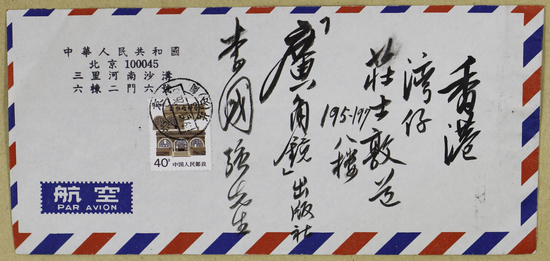 中華人民共和國
北京 100045
三里河南沙溝
六棟二門六號
香港
灣仔
莊士敦道
195-197 八樓
「廣角鏡」出版社
李國強先生
40分
中国人民邮政
航空
PAR AVION